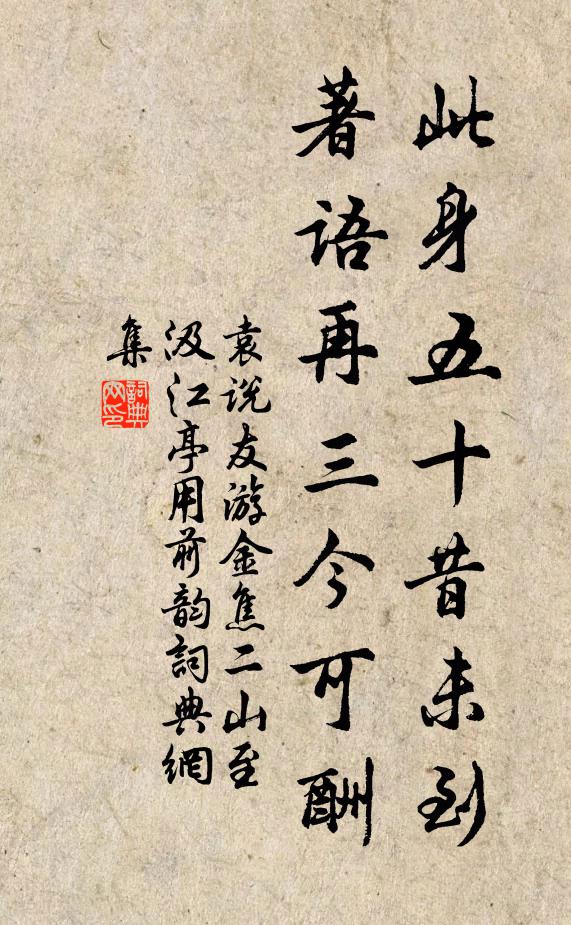 此身五十昔未到
著語再三今可酬
袁说友游金焦二山至
汲江亭用前韵詞典網
集
詞典網印